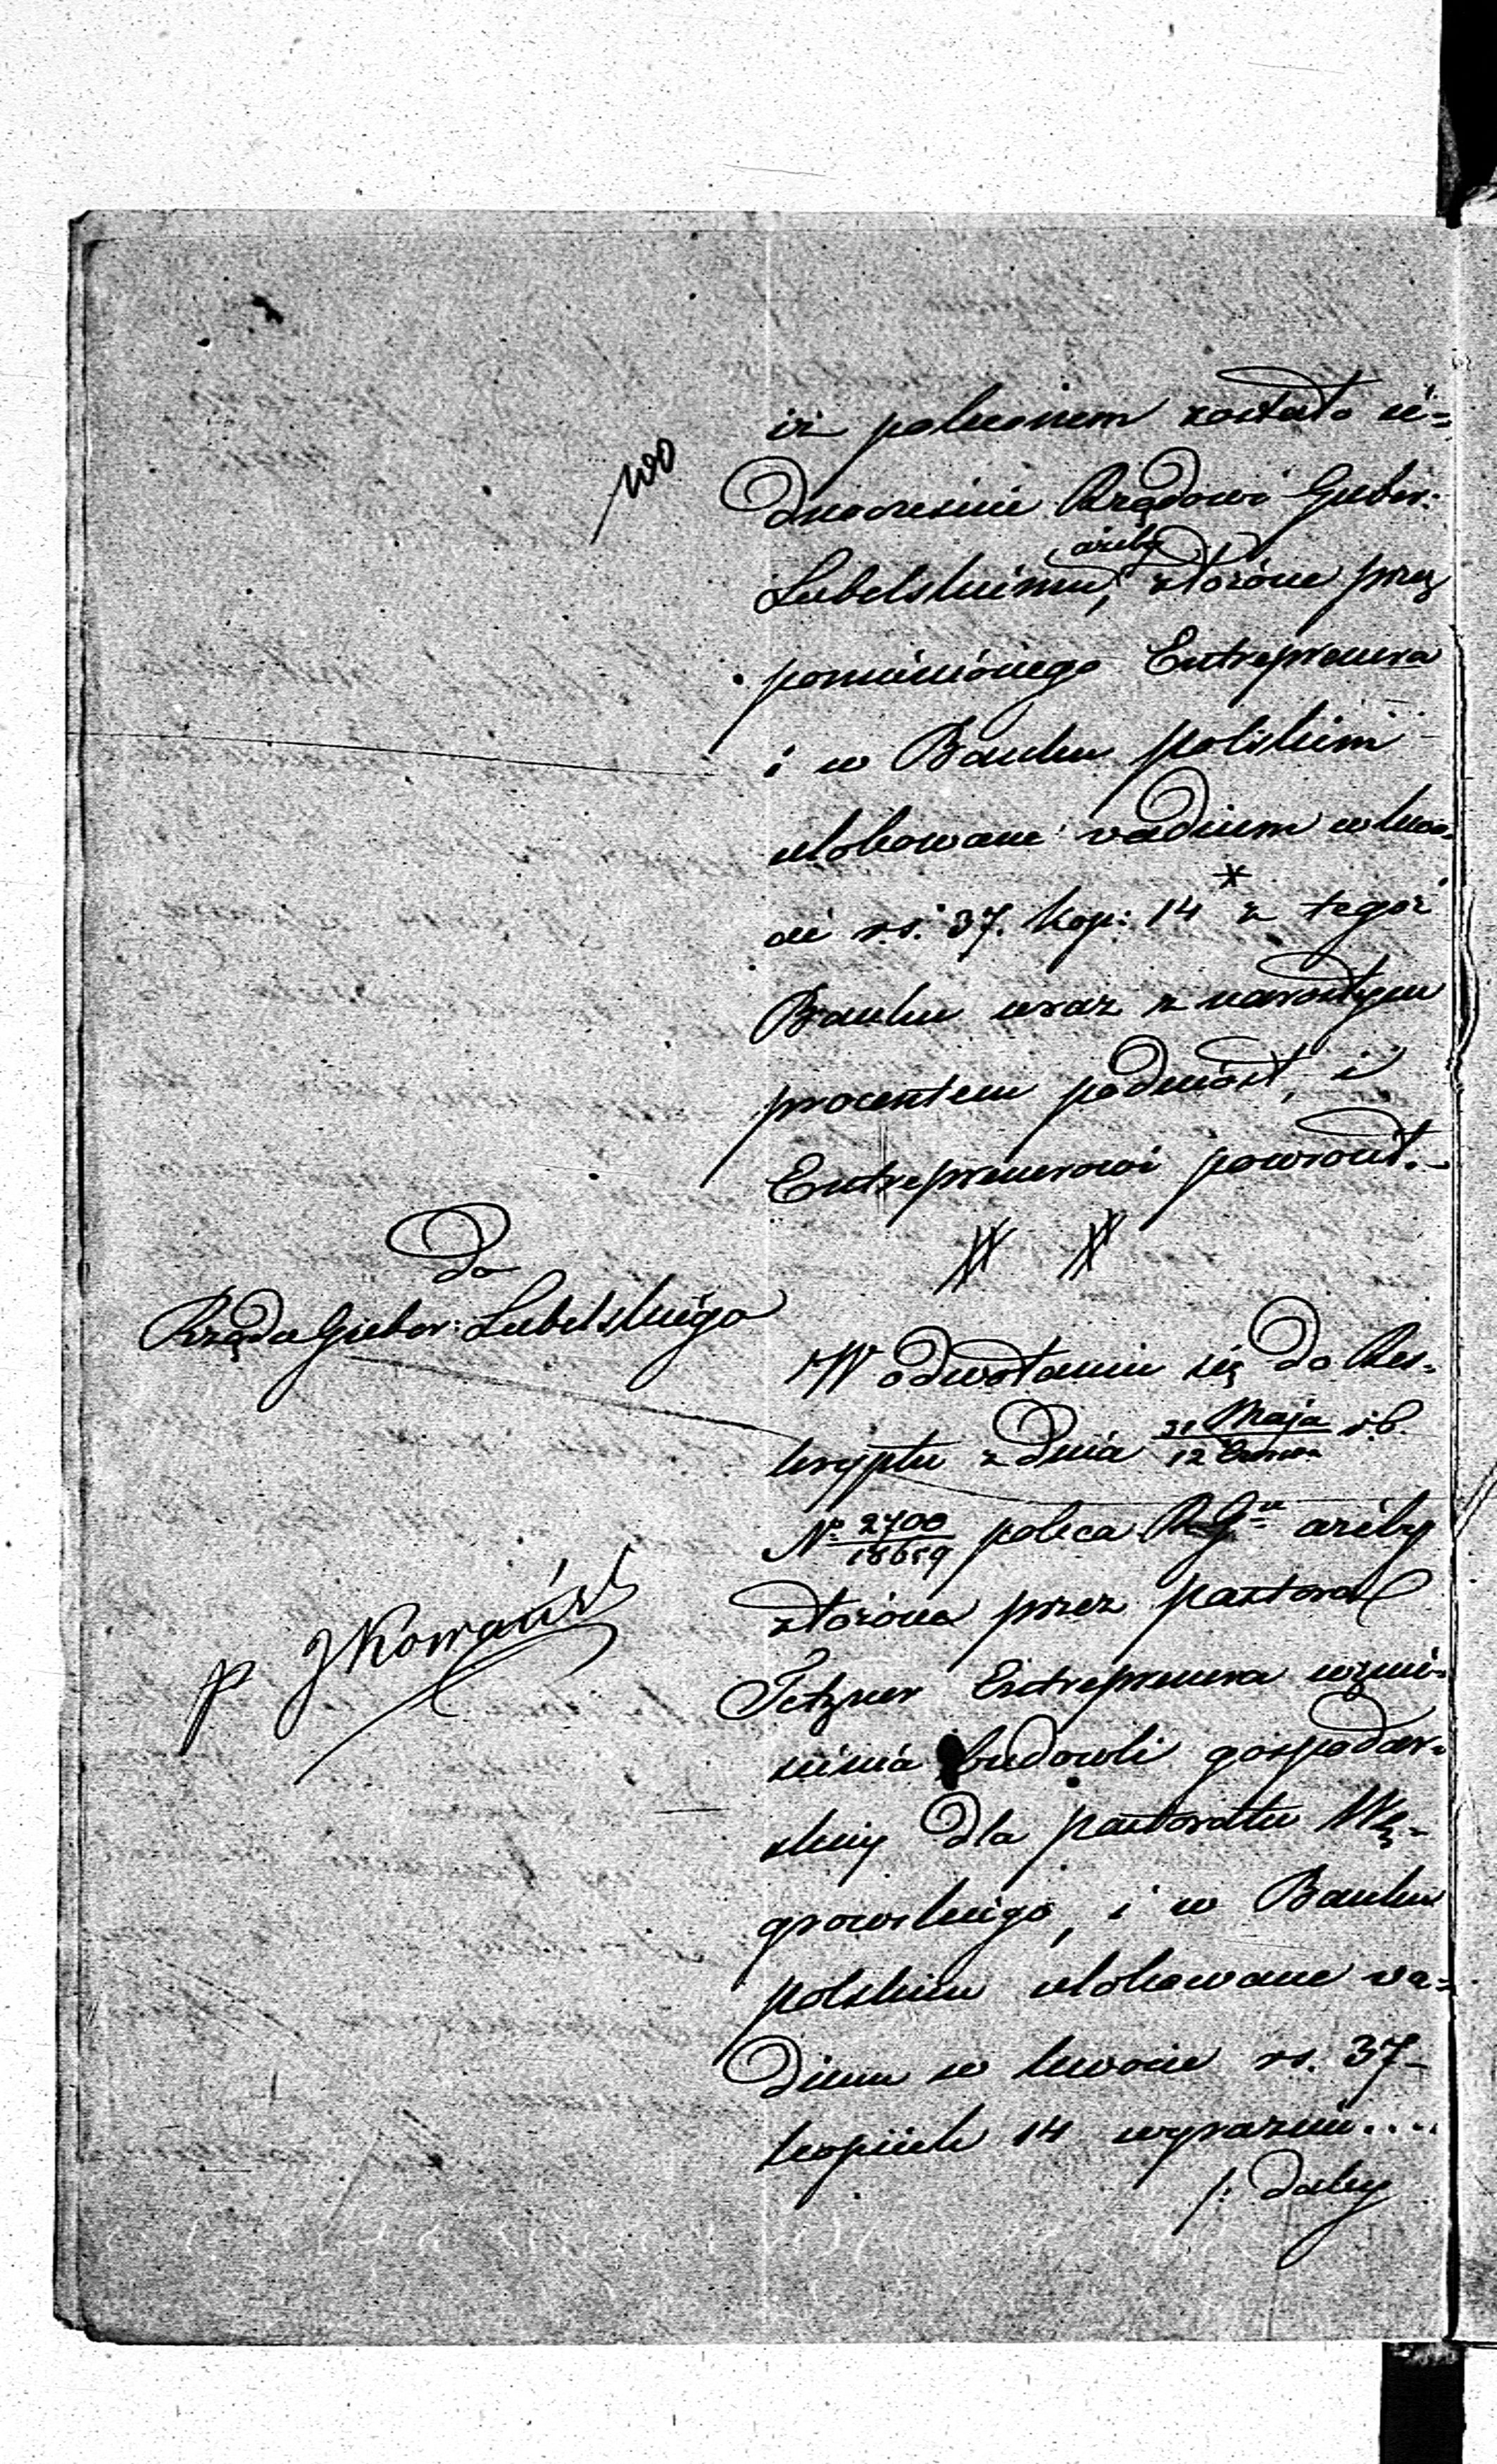 iż poleconem zostało je=
dnocześnie Rządowi Guber:
ażeby
Lubelskiemu, złożone przez
pomienionego Entreprenera
i w Banku polskim
ulokowane vadium w kwo=
cie rs. 37. kop: 14 z tegoż
Banku wraz z narosłym
procentem podniósł, i
Entreprenerowi powrócił.
Do
Rządu Guber: Lubelskiego
W odwołaniu się do Res=
kryptu z dnia 31 Maja / 12 Czerwca r. b.
No 2700 / 18659 poleca R. Gu ażeby
złożone przez pastora
Tetzner Entreprenera wznie=
sienia budowli gospodar=
skiej dla pastoratu Wę=
growskiego, i w Banku
polskim ulokowane va=
dium w kwocie rs. 37
kopiiek 14 wyraźnie....
/: daley